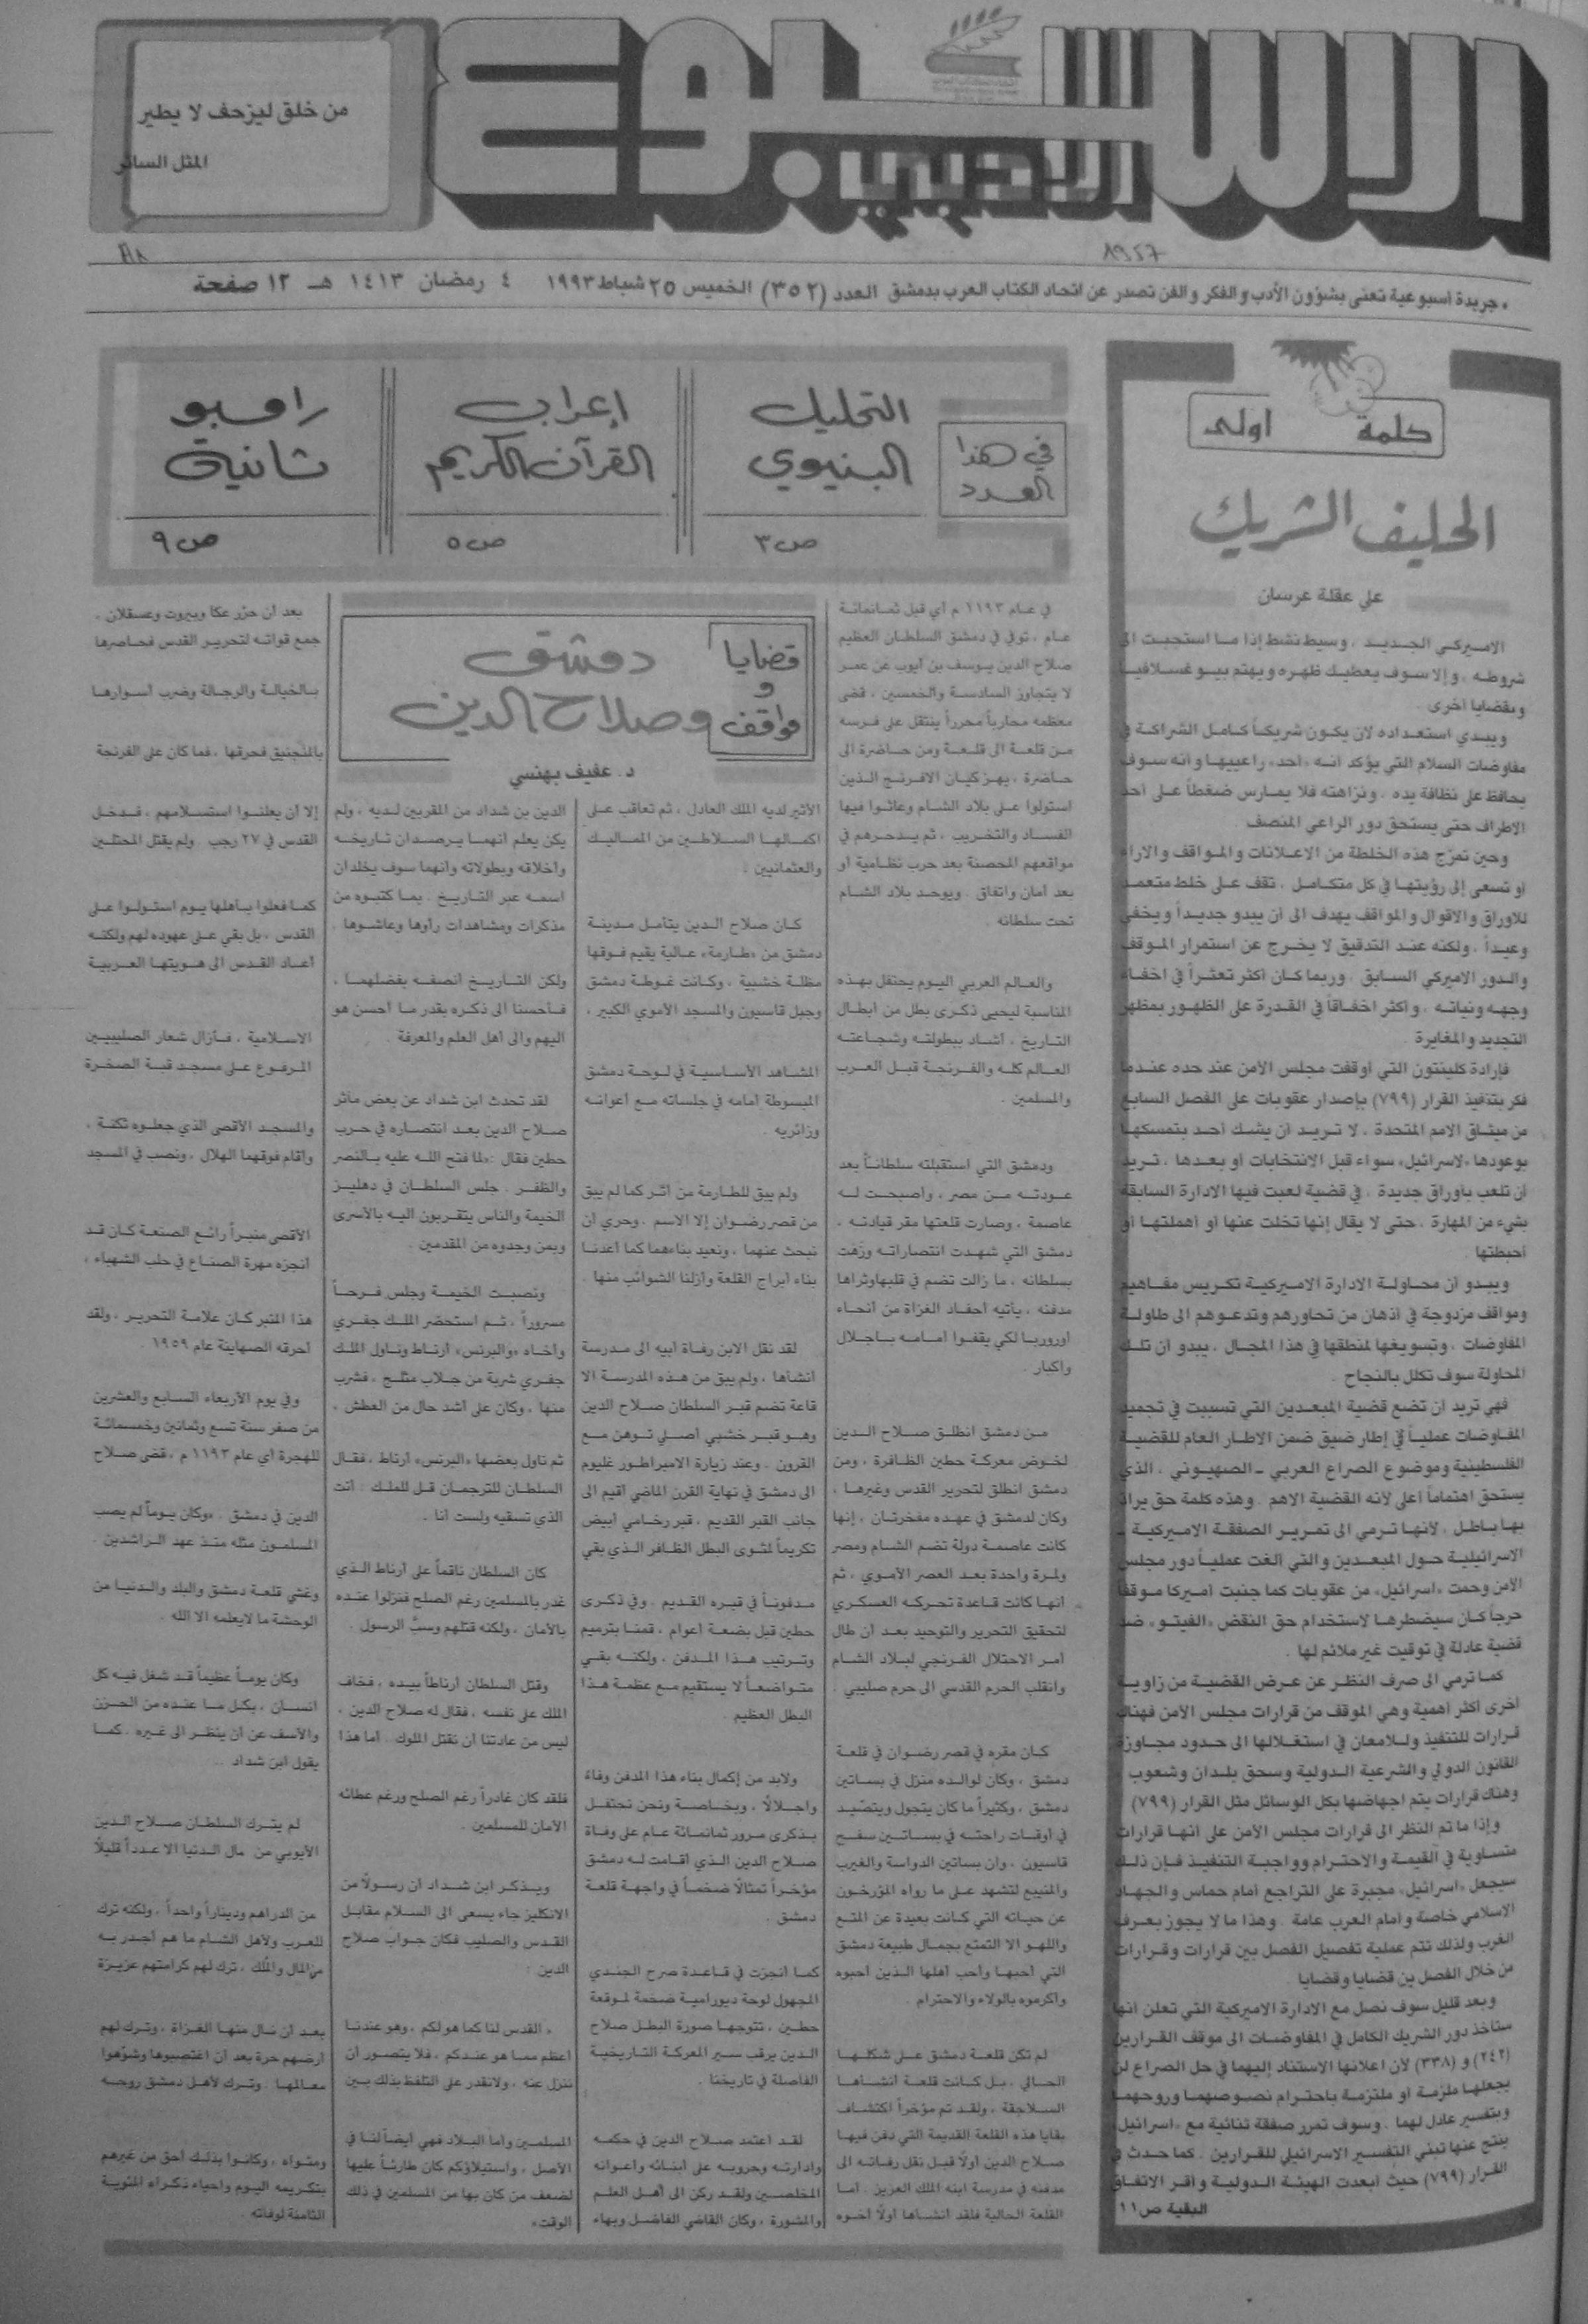 الاسبوع
الادبي
من خلق ليزحف لا يطير
المثل السائر
• جريدة أسبوعية تعنى بشؤون الأدب والفكر والفن تصدر عن اتحاد الكتاب العرب بدمشق العدد (٣٥٢) الخميس ٢٥ شباط ١٩٩٣ ٤ رمضان ١٤١٣ هـ ١٢ صفحة
في هذا
العدد
التحليل
البنيوي
ص ٣
إعراب
القرآن الكريم
ص ٥
رامبو
ثانية
ص ٩
كلمة اولى
الحليف الشريك
علي عقلة عرسان
الاميركي الجديد ، وسيط نشط إذا ما استجبت الى
شروطه ، وإلا سوف يعطيك ظهره ويهتم بيوغسلافيا
وبقضايا أخرى .
ويبدي استعداده لان يكون شريكاً كامل الشراكة في
مفاوضات السلام التي يؤكد أنه «أحد» راعييها وأنه سوف
يحافظ على نظافة يده ، ونزاهته فلا يمارس ضغطاً على أحد
الاطراف حتى يستحق دور الراعي المنصف .
وحين تمزج هذه الخلطة من الاعلانات والمواقف والاراء
أو تسعى إلى رؤيتها في كل متكامل ، تقف على خلط متعمد
للأوراق والاقوال والمواقف يهدف الى أن يبدو جديداً ويخفي
وعيداً ، ولكنه عند التدقيق لا يخرج عن استمرار الموقف
والدور الاميركي السابق . وربما كان أكثر تعثراً في اخفاء
وجهه ونياته ، واكثر اخفاقاً في القدرة على الظهور بمظهر
التجديد والمغايرة .
فإرادة كلينتون التي أوقفت مجلس الأمن عند حده عندما
فكر بتنفيذ القرار (٧٩٩) بإصدار عقوبات على الفصل السابع
من ميثاق الامم المتحدة ، لا تريد أن يشك أحد بتمسكها
بوعودها «لاسرائيل» سواء قبل الانتخابات أو بعدها ، تريد
أن تلعب بأوراق جديدة ، في قضية لعبت فيها الادارة السابقة
بشيء من المهارة ، حتى لا يقال إنها تخلت عنها أو أهملتها أو
أحبطتها .
ويبدو أن محاولة الادارة الاميركية تكريس مفاهيم
ومواقف مزدوجة في أذهان من تحاورهم وتدعوهم الى طاولة
المفاوضات ، وتسويغها لمنطقها في هذا المجال ، يبدو أن تلك
المحاولة سوف تكلل بالنجاح .
فهي تريد أن تضع قضية المبعدين التي تسببت في تجميد
المفاوضات عملياً في إطار ضيق ضمن الاطار العام للقضية
الفلسطينية وموضوع الصراع العربي ـ الصهيوني ، الذي
يستحق اهتماماً أعلى لأنه القضية الاهم . وهذه كلمة حق يراد
بها باطل ، لأنها ترمي الى تمرير الصفقة الاميركية ـ
الاسرائيلية حول المبعدين والتي ألغت عملياً دور مجلس
الأمن وحمت «اسرائيل» من عقوبات كما جنبت أميركا موقفاً
حرجاً كان سيضطرها لاستخدام حق النقض «الفيتو» ضد
قضية عادلة في توقيت غير ملائم لها .
كما ترمي الى صرف النظر عن عرض القضية من زاوية
أخرى أكثر أهمية وهي الموقف من قرارات مجلس الأمن فهناك
قرارات للتنفيذ وللامعان في استغلالها الى حدود مجاوزة
القانون الدولي والشرعية الدولية وسحق بلدان وشعوب ،
وهناك قرارات يتم اجهاضها بكل الوسائل مثل القرار (٧٩٩)
وإذا ما تم النظر الى قرارات مجلس الأمن على أنها قرارات
متساوية في القيمة والاحترام وواجبة التنفيذ فإن ذلك
سيجعل «اسرائيل» مجبرة على التراجع أمام حماس والجهاد
الاسلامي خاصة وأمام العرب عامة . وهذا ما لا يجوز بعرف
الغرب ولذلك تتم عملية تفصيل الفصل بين قرارات وقرارات
من خلال الفصل بين قضايا وقضايا .
وبعد قليل سوف نصل مع الادارة الاميركية التي تعلن انها
ستأخذ دور الشريك الكامل في المفاوضات الى موقف القرارين
(٢٤٢) و (٣٣٨) لأن اعلانها الاستناد إليهما في حل الصراع لن
يجعلها ملزمة أو ملتزمة باحترام نصوصهما وروحهما
وبتفسير عادل لهما . وسوف تمرر صفقة ثنائية مع «اسرائيل»
ينتج عنها تبني التفسير الاسرائيلي للقرارين . كما حدث في
القرار (٧٩٩) حيث أبعدت الهيئة الدولية وأقر الاتفاق
البقية ص ١١
قضايا
و
مواقف
دمشق
وصلاح الدين
د. عفيف بهنسي
في عام ١١٩٣ م أي قبل ثمانمائة
عام ، توفي في دمشق السلطان العظيم
صلاح الدين يوسف بن أيوب عن عمر
لا يتجاوز السادسة والخمسين ، قضى
معظمه محارباً محرراً ينتقل على فرسه
من قلعة الى قلعة ومن حاضرة الى
حاضرة ، يهز كيان الافرنج الذين
استولوا على بلاد الشام وعاثوا فيها
الفساد والتخريب ، ثم يدحرهم في
مواقعهم المحصنة بعد حرب نظامية أو
بعد أمان واتفاق . ويوحد بلاد الشام
تحت سلطانه .
والعالم العربي اليوم يحتفل بهذه
المناسبة ليحيي ذكرى بطل من أبطال
التاريخ ، أشاد ببطولته وشجاعته
العالم كله والفرنجة قبل العرب
والمسلمين .
ودمشق التي استقبلته سلطاناً بعد
عودته من مصر ، وأصبحت له
عاصمة ، وصارت قلعتها مقر قيادته ،
دمشق التي شهدت انتصاراته وزهت
بسلطانه ، ما زالت تضم في قلبها وثراها
مدفنه ، يأتيه أحفاد الغزاة من أنحاء
أوروبا لكي يقفوا أمامه بإجلال
واكبار .
من دمشق انطلق صلاح الدين
لخوض معركة حطين الظافرة ، ومن
دمشق انطلق لتحرير القدس وغيرها ،
وكان لدمشق في عهده مفخرتان ، إنها
كانت عاصمة دولة تضم الشام ومصر
ولمرة واحدة بعد العصر الأموي ، ثم
أنها كانت قاعدة تحركه العسكري
لتحقيق التحرير والتوحيد بعد أن طال
أمر الاحتلال الفرنجي لبلاد الشام
وانقلب الحرم القدسي الى حرم صليبي .
كان مقره في قصر رضوان في قلعة
دمشق ، وكان لوالده منزل في بساتين
دمشق ، وكثيراً ما كان يتجول ويتصيد
في أوقات راحته في بساتين سفح
قاسيون ، وان بساتين الدواسة والغيرب
والمنيبع لتشهد على ما رواه المؤرخون
عن حياته التي كانت بعيدة عن المتع
واللهو الا التمتع بجمال طبيعة دمشق
التي أحبها وأحب أهلها الذين أحبوه
وأكرموه بالولاء والاحترام .
لم تكن قلعة دمشق على شكلها
الحالي ، بل كانت قلعة أنشأها
السلاجقة ، ولقد تم مؤخراً اكتشاف
بقايا هذه القلعة القديمة التي دفن فيها
صلاح الدين أولاً قبل نقل رفاته الى
مدفنه في مدرسة ابنه الملك العزيز . أما
القلعة الحالية فلقد أنشأها أولاً أخوه
الأثير لديه الملك العادل ، ثم تعاقب على
اكمالها السلاطين من المماليك
والعثمانيين .
كان صلاح الدين يتأمل مدينة
دمشق من «طارمة» عالية يقيم فوقها
مظلة خشبية ، وكانت غوطة دمشق
وجبل قاسيون والمسجد الأموي الكبير ،
المشاهد الأساسية في لوحة دمشق
المبسوطة أمامه في جلساته مع أعوانه
وزائريه .
ولم يبق للطارمة من أثر كما لم يبق
من قصر رضوان إلا الاسم . وحري أن
نبحث عنهما ، ونعيد بناءهما كما أعدنا
بناء أبراج القلعة وأزلنا الشوائب منها .
لقد نقل الابن رفاة أبيه الى مدرسة
أنشأها ، ولم يبق من هذه المدرسة الا
قاعة تضم قبر السلطان صلاح الدين
وهو قبر خشبي أصلي توهن مع
القرون . وعند زيارة الامبراطور غليوم
الى دمشق في نهاية القرن الماضي أقيم الى
جانب القبر القديم ، قبر رخامي أبيض
تكريماً لمثوى البطل الظافر الذي بقي
مدفوناً في قبره القديم . وفي ذكرى
حطين قبل بضعة أعوام ، قمنا بترميم
وترتيب هذا المدفن ، ولكنه بقي
متواضعاً لا يستقيم مع عظمة هذا
البطل العظيم .
ولابد من إكمال بناء هذا المدفن وفاءً
واجلالاً ، وبخاصة ونحن نحتفل
بذكرى مرور ثمانمائة عام على وفاة
صلاح الدين الذي أقامت له دمشق
مؤخراً تمثالاً ضخماً في واجهة قلعة
دمشق .
كما أنجزت في قاعدة صرح الجندي
المجهول لوحة ديورامية ضخمة لموقعة
حطين ، تتوجها صورة البطل صلاح
الدين يرقب سير المعركة التاريخية
الفاصلة في تاريخنا .
لقد اعتمد صلاح الدين في حكمه
وادارته وحروبه على أبنائه وأعوانه
المخلصين ولقد ركن الى أهل العلم
والمشورة ، وكان القاضي الفاضل وبهاء
الدين بن شداد من المقربين لديه ، ولم
يكن يعلم أنهما يرصدان تاريخه
وأخلاقه وبطولاته وأنهما سوف يخلدان
اسمه عبر التاريخ . بما كتبوه من
مذكرات ومشاهدات رأوها وعاشوها .
ولكن التاريخ أنصفه بفضلهما ،
فأحسنا الى ذكره بقدر ما أحسن هو
اليهم والى أهل العلم والمعرفة .
لقد تحدث ابن شداد عن بعض مآثر
صلاح الدين بعد انتصاره في حرب
حطين فقال : «لما فتح الله عليه بالنصر
والظفر . جلس السلطان في دهليز
الخيمة والناس يتقربون اليه بالأسرى
وبمن وجدوه من المقدمين .
ونصبت الخيمة وجلس فرحاً
مسروراً ، ثم استحضر الملك جفري
وأخاه «والبرنس» أرناط وناول الملك
جفري شربة من جلاب مثلج ، فشرب
منها ، وكان على أشد حال من العطش ،
ثم ناول بعضها «البرنس» أرناط ، فقال
السلطان للترجمان قل للملك : أنت
الذي تسقيه ولست أنا .
كان السلطان ناقماً على أرناط الذي
غدر بالمسلمين رغم الصلح فنزلوا عنده
بالأمان ، ولكنه قتلهم وسبَّ الرسول .
وقتل السلطان أرناطاً بيده ، فخاف
الملك على نفسه ، فقال له صلاح الدين ،
ليس من عادتنا أن نقتل الملوك . أما هذا
فلقد كان غادراً رغم الصلح ورغم عطائه
الأمان للمسلمين .
ويذكر ابن شداد أن رسولاً من
الانكليز جاء يسعى الى السلام مقابل
القدس والصليب فكان جواب صلاح
الدين :
« القدس لنا كما هو لكم ، وهو عندنا
أعظم مما هو عندكم ، فلا يتصور أن
ننزل عنه ، ولا نقدر على التلفظ بذلك بين
المسلمين وأما البلاد فهي أيضاً لنا في
الأصل ، واستيلاؤكم كان طارئاً عليها
لضعف من كان بها من المسلمين في ذلك
الوقت»
بعد أن حرّر عكا وبيروت وعسقلان ،
جمع قواته لتحرير القدس فحاصرها
بالخيالة والرجالة وضرب أسوارها
بالمنجنيق فحرقها ، فما كان على الفرنجة
إلا أن يعلنوا استسلامهم ، فدخل
القدس في ٢٧ رجب . ولم يقتل المحتلين
كما فعلوا بأهلها يوم استولوا على
القدس ، بل بقي على عهوده لهم ولكنه
أعاد القدس الى هويتها العربية
الاسلامية ، فأزال شعار الصليبيين
المرفوع على مسجد قبة الصخرة
والمسجد الأقصى الذي جعلوه ثكنة ،
وأقام فوقهما الهلال ، ونصب في المسجد
الأقصى منبراً رائع الصنعة كان قد
أنجزه مهرة الصناع في حلب الشهباء ،
هذا المنبر كان علامة التحرير ، ولقد
أحرقه الصهاينة عام ١٩٥٩
وفي يوم الأربعاء السابع والعشرين
من صفر سنة تسع وثمانين وخمسمائة
للهجرة أي عام ١١٩٣ م ، قضى صلاح
الدين في دمشق . «وكان يوماً لم يصب
المسلمون مثله منذ عهد الراشدين .
وغشي قلعة دمشق والبلد والدنيا من
الوحشة ما لا يعلمه الا الله .
وكان يوماً عظيماً قد شغل فيه كل
انسان ، بكل ما عنده من الحزن
والأسف عن أن ينظر الى غيره . كما
يقول ابن شداد ..
لم يترك السلطان صلاح الدين
الأيوبي من مال الدنيا الا عدداً قليلاً
من الدراهم وديناراً واحداً ، ولكنه ترك
للعرب ولأهل الشام ما هم أجدر به
من المال والملك ، ترك لهم كرامتهم عزيزة
بعد أن نال منها الغزاة ، وترك لهم
أرضهم حرة بعد أن اغتصبوها وشوّهوا
معالمها . وترك لأهل دمشق روحه
ومثواه ، وكانوا بذلك أحق من غيرهم
بتكريمه اليوم وإحياء ذكراه المئوية
الثامنة لوفاته .